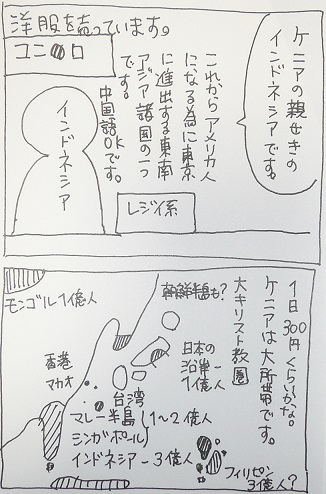 洋服を売っています。
ユニ●ロ
ケニアの親せきの
インドネシアです。
これからアメリカ人
になる為に東京
に進出する東南
アジア諸国の一つ
です。
中国語OKです。
インドネシア
レジイ系
1日300円くらいかな。
ケニアは大所帯です。
大キリスト教圏
朝鮮半島も?
モンゴル1億人
日本の
沿岸ー
1億人
香港
マカオ
台湾
マレー半島
シンガポール
1〜2億人
インドネシアー3億人
フィリピン
3億人?